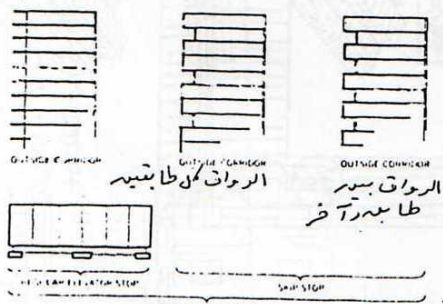 OUTSIDE CORRIDOR
OUTSIDE CORRIDOR
OUTSIDE CORRIDOR
الرواق كل طابقين
الرواق بين
طابق وآخر
REGULAR ELEVATOR STOP
SKIP STOP